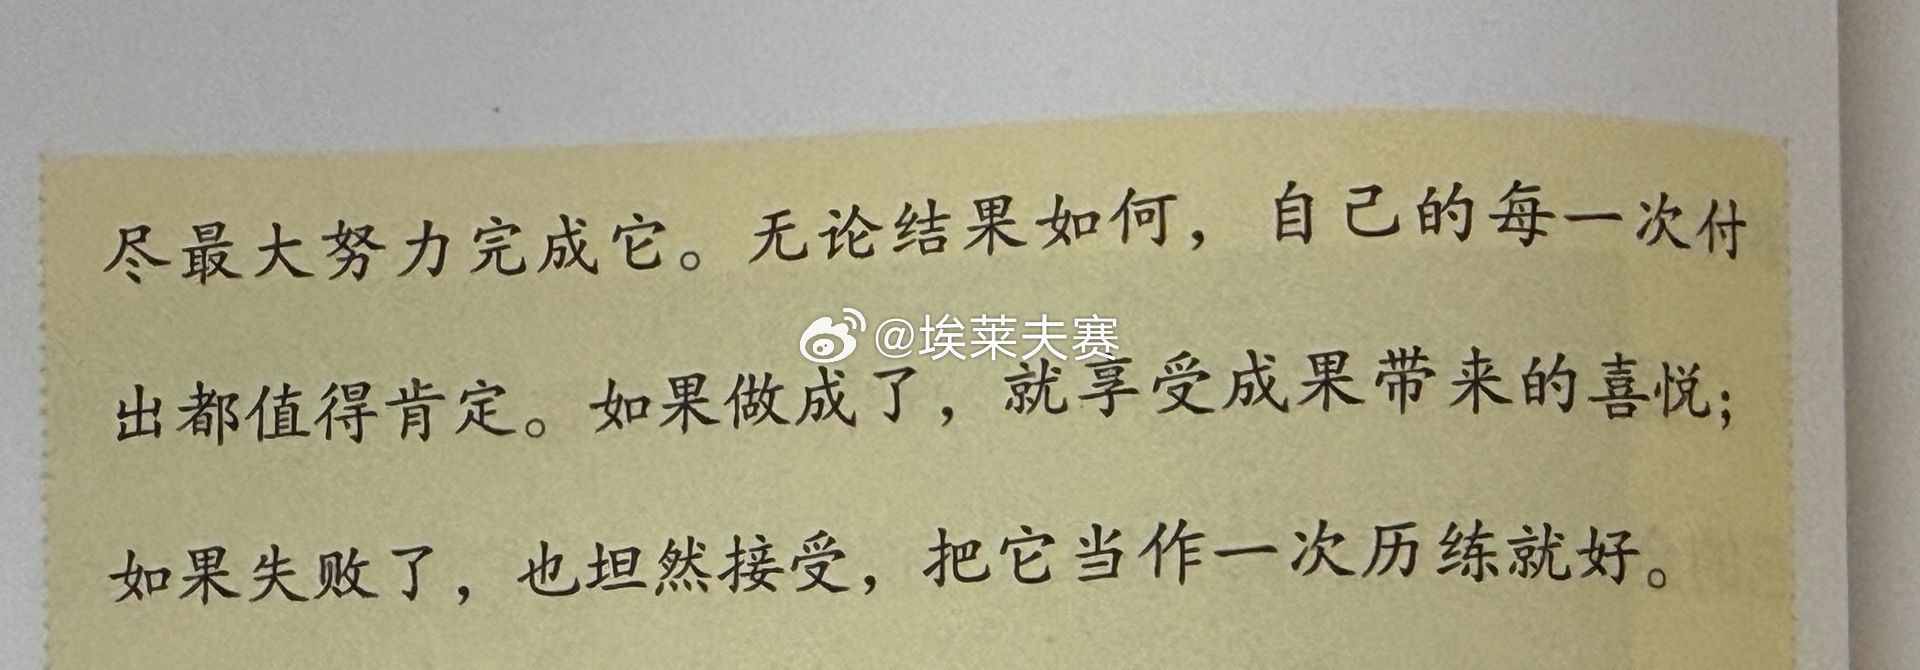 尽最大努力完成它。无论结果如何，自己的每一次付
@埃莱夫赛
出都值得肯定。如果做成了，就享受成果带来的喜悦；
如果失败了，也坦然接受，把它当作一次历练就好。